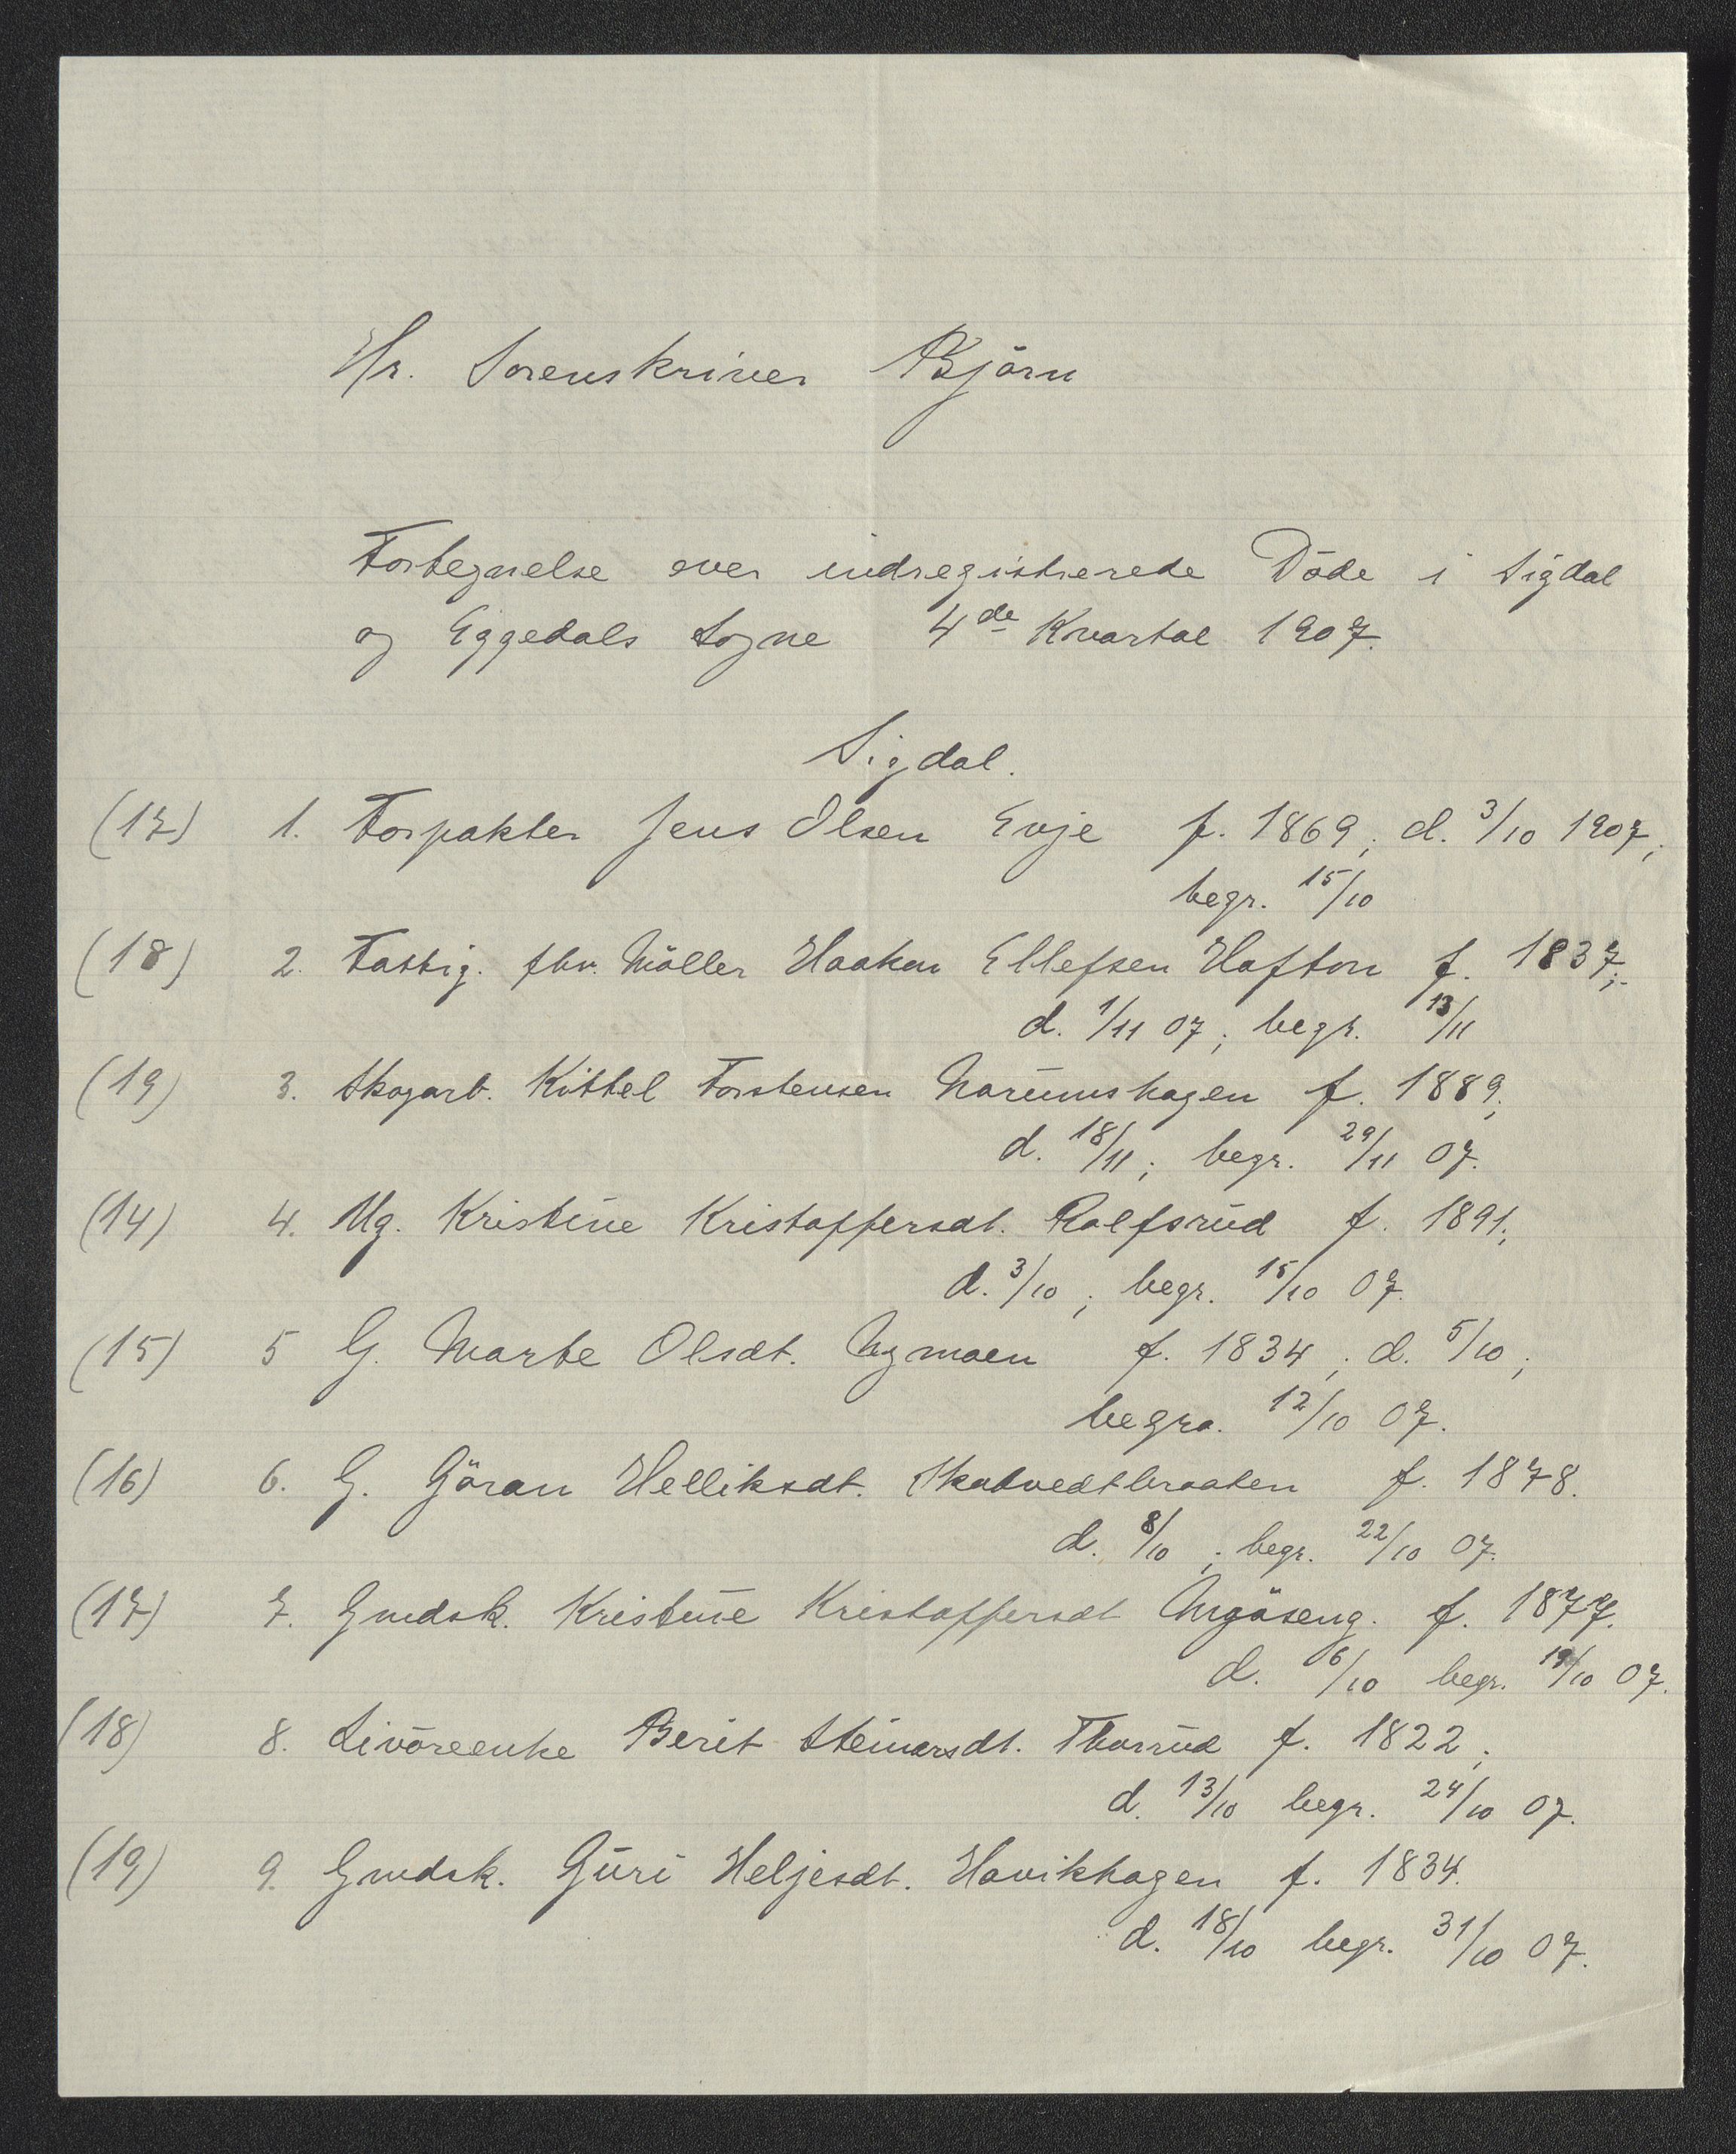 Hr. Sorenskriver Bjørn
Fortegnelse over indregistrerede Döde i Sigdal
og Eggedals Sogne 4de Kvartal 1907.
Sigdal.
(17) 1. Forpakter Jens Olsen Evje f. 1869; d. 3/10 1907;
begr. 15/10
(18) 2. Fattig. fhv. Möller Haakon Ellefsen Hafton f. 1837;
d. 1/11 07; begr. 13/11
(19) 3. Skogarb. Kittel Torstensen Narumshagen f. 1889;
d. 18/11; begr. 29/11 07.
(14) 4. Ug. Kristine Kristoffersdt. Rolfsrud f. 1891;
d. 3/10; begr. 15/10 07.
(15) 5 G. Marte Olsdt. Nymoen f. 1834; d. 5/10;
begra. 12/10 07.
(16) 6. G. Göran Helliksdt. Skatvedtbraaten f. 1878.
d. 8/10; begr. 22/10 07.
(17) 7. Gmdsk. Kristine Kristoffersdt f. 1877.
d. 6/10 begr. 19/10 07.
(18) 8. Livöreenke Berit Steinarsdt. Thorrud f. 1822;
d. 13/10 begr. 24/10 07.
(19) 9. Gmdsk. Guri Heljesdt. Havikhagen f. 1834.
d. 18/10 begr. 31/10 07.